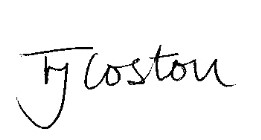 Ty Coston